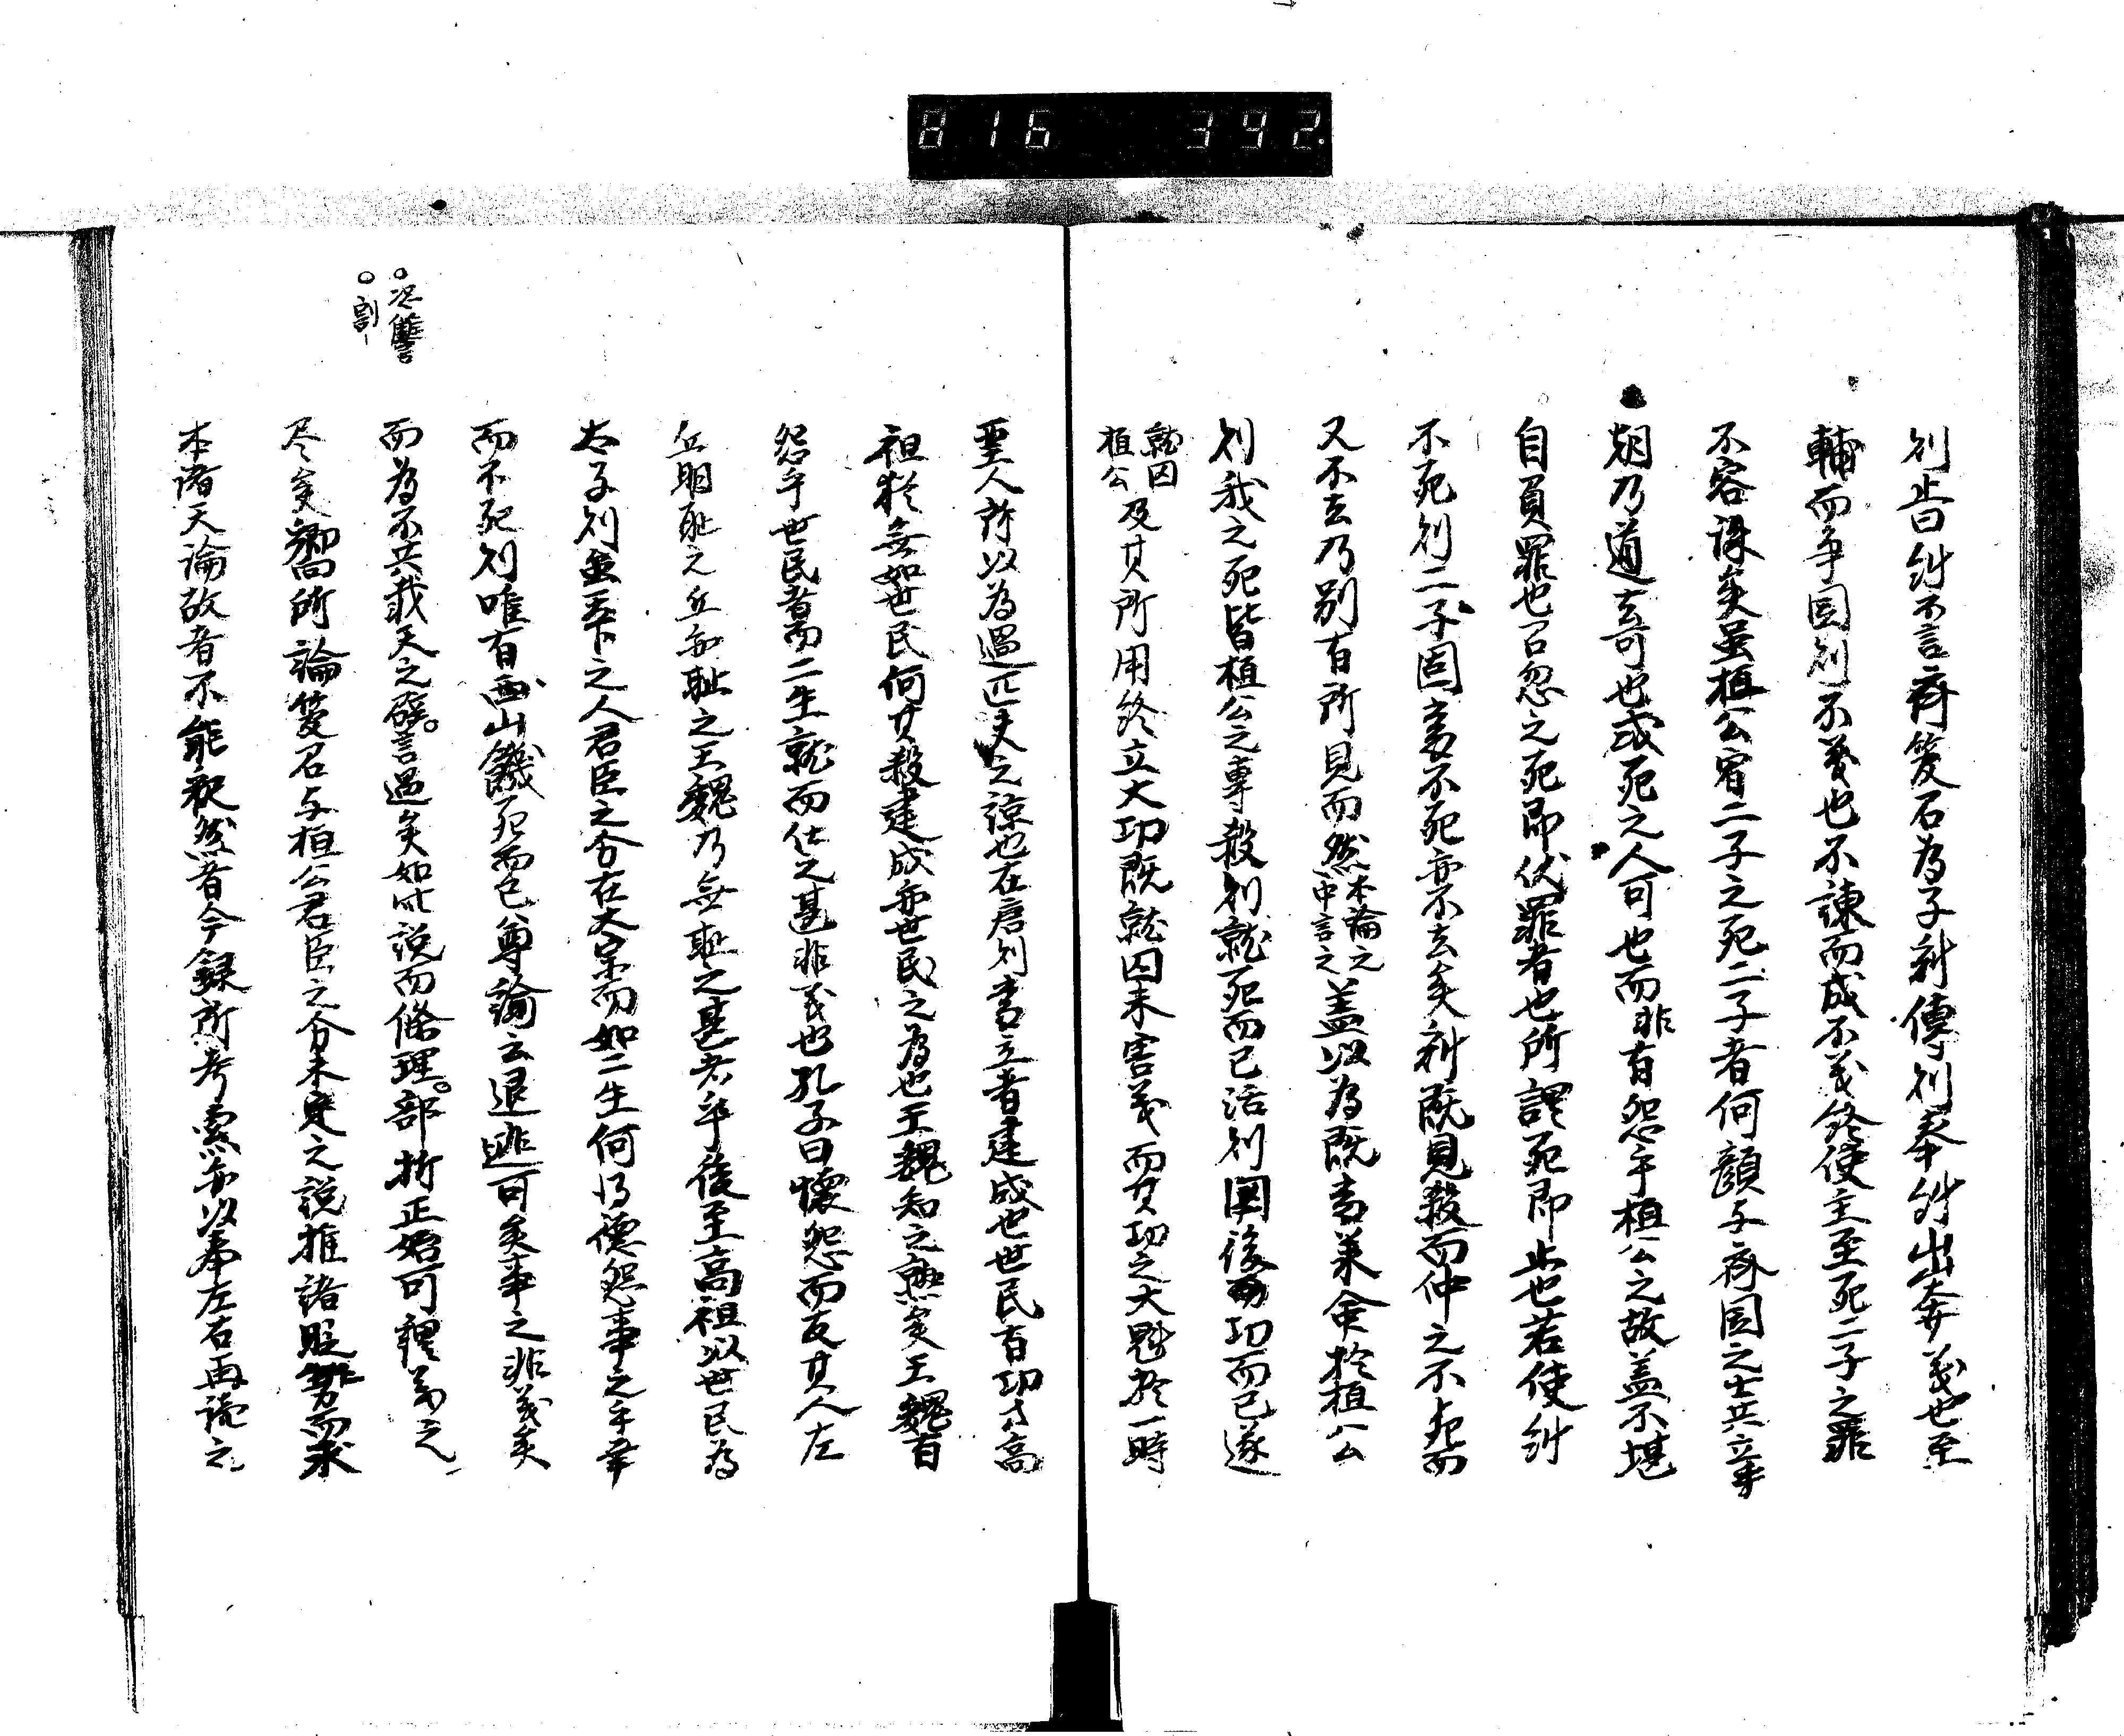 816 392.
則皆曰糾不言齊管召為子糾傅則奉糾出奔義也至
輔而争国則不義也不諌而成不義終使主至死二子之罪
不容誅矣虽桓公宥二子之死二子者何顔与齊国之士共立乎
朝乃遁去可也或死之人可也而非有怨乎桓公之故盖不堪
自負罪也召忽之死即伏罪者也所謂死即止也若使糾
不死則二子固當不死亦不去矣糾既見殺而仲之不死而
又不去乃別有所見而然本論之中言之盖以為既當業舍於桓公
則我之死皆桓公之専殺則就死而已活則図後功而已遂
就囚桓公及其所用終立大功既就囚未害義而其功之大魁於一時
聖人所以為過匹夫之諒也在唐則當立者建成也世民有功才高
祖猶無如世民何其殺建成亦世民之為也王魏知之熟矣王魏有
怨乎世民者而二生就而仕之甚非義也孔子曰懐怨而友其人左
丘明耻之丘亦耻之王魏乃無耻之甚者乎後至高祖以世民為
太子則天下之人君臣之分在太宗而如二生何得懐怨事之乎幸
而不死則唯有西山饑死而已尊諭云退避可矣事之非義矣
而為不共戴天之讐言過矣如此説而條理部折正始可謂為之
尽矣嚮所論管召与桓公君臣之分未定之説推諸服労而求
本諸天論故者不能釈然者今録所考索亦以奉左右再読之
○讐
○割